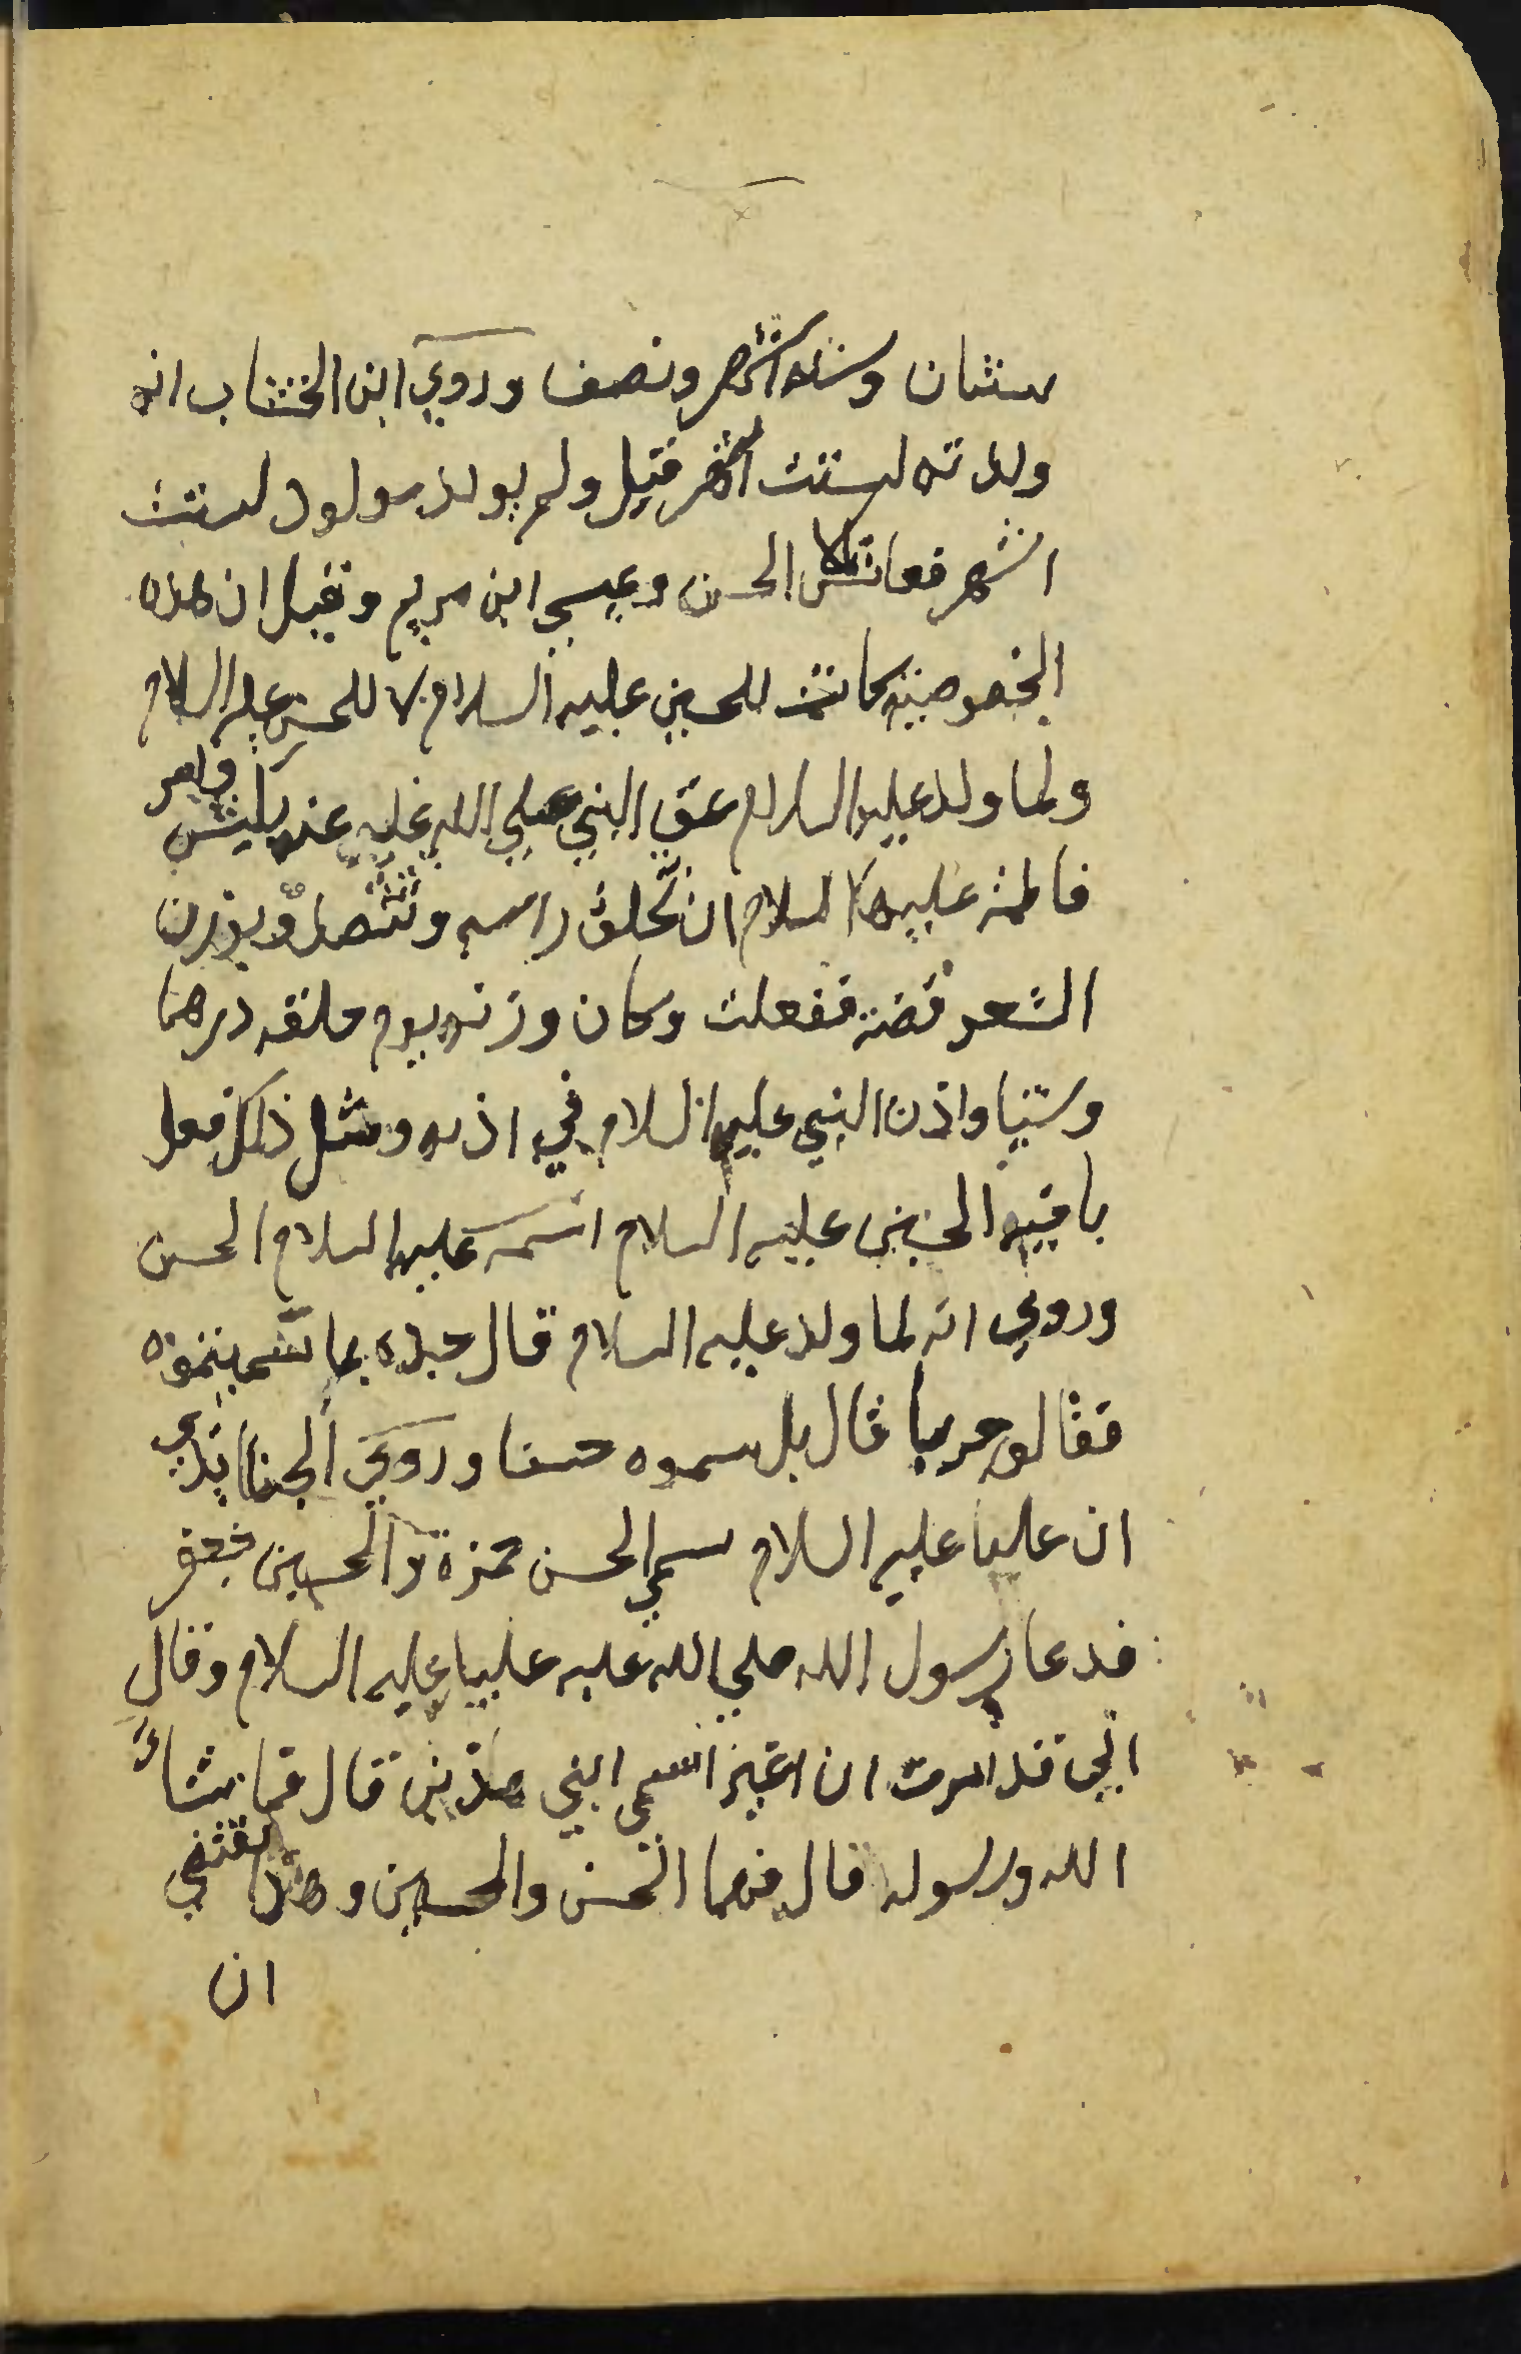 سنتان وستة اشهر ونصف وروي ابن الخشاب انه
ولدته لستت اشهر قيل ولم يولد مولود لستت
اشهر فعاش الا الحسن وعيسى ابن مريم وقيل ان هذه
الخصوصية كانت للحسين عليه السلام لا للحسن عليه السلام
ولما ولد عليه السلام عق النبي صلى الله عليه عنه بكبش وامر
فاطمة عليها السلام ان تحلق راسه وتتصدق بوزن
الشعر فضة ففعلت وكان وزنه يوم حلقه درهما
وشيا واذن النبي عليه السلام في اذنه ومثل ذلك فعل
باخيه الحسين عليه السلام اسمه عليه السلام الحسن
وروي انه لما ولد عليه السلام قال جده بما سميتموه
فقالو حربا قال بل سموه حسنا وروي الجنابذي
ان عليا عليه السلام سمى الحسن حمزة والحسين جعفر
فدعا رسول الله صلى الله عليه عليا عليه السلام وقال
اني قد امرت ان اغير اسمي ابني هذين قال فما شاء
الله ورسوله قال فهما الحسن والحسين وهذا يقتضي
ان